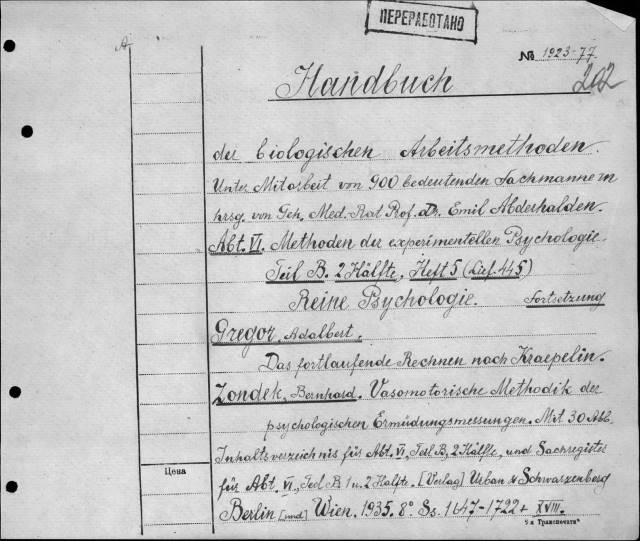 ПЕРЕРАБОТАНО
№ 1923-77
202
Handbuch
der biologischen Arbeitsmethoden.
Unter Mitarbeit von 900 bedeutenden Fachmännern
hrsg. von Geh. Med. Rat Prof. Dr. Emil Abderhalden.
Abt. VI. Methoden der experimentellen Psychologie.
Teil B. 2 Hälfte, Heft 5 (Lief. 445)
Reine Psychologie. Fortsetzung
Gregor, Adalbert.
Das fortlaufende Rechnen nach Kraepelin.
Zondek, Bernhard. Vasomotorische Methodik der
psychologischen Ermüdungsmessungen. Mit 30 Abb.
Inhaltsverzeichnis für Abt. VI, Teil B, 2 Hälfte, und Sachregister
für Abt. VI, Teil B 1 u. 2 Hälfte. [Verlag] Urban & Schwarzenberg
Berlin [und] Wien. 1935. 8° Ss. 1647-1722 + XVIII.
Цена